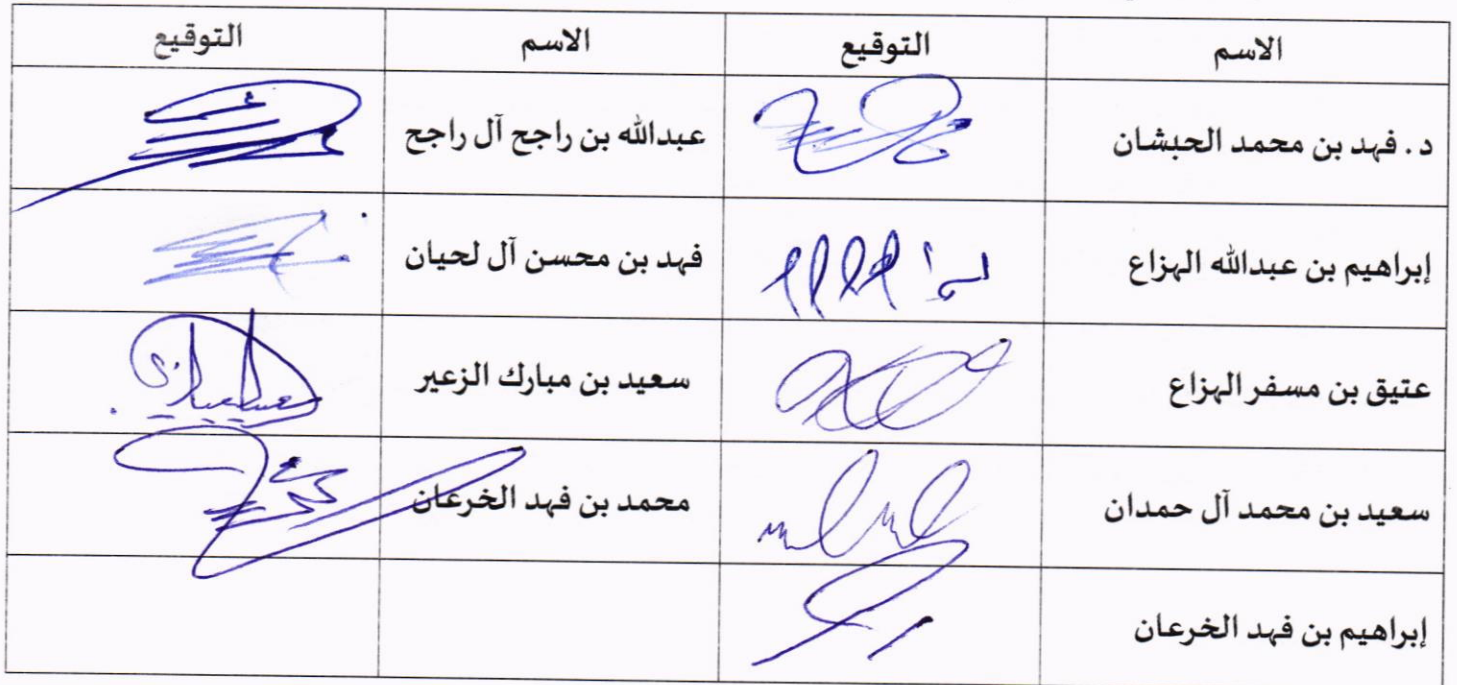 الاسم التوقيع الاسم التوقيع
د. فهد بن محمد الحبشان عبدالله بن راجح آل راجح
إبراهيم بن عبدالله الهزاع فهد بن محسن آل لحيان
عتيق بن مسفر الهزاع سعيد بن مبارك الزعير
سعيد بن محمد آل حمدان محمد بن فهد الخرعان
إبراهيم بن فهد الخرعان